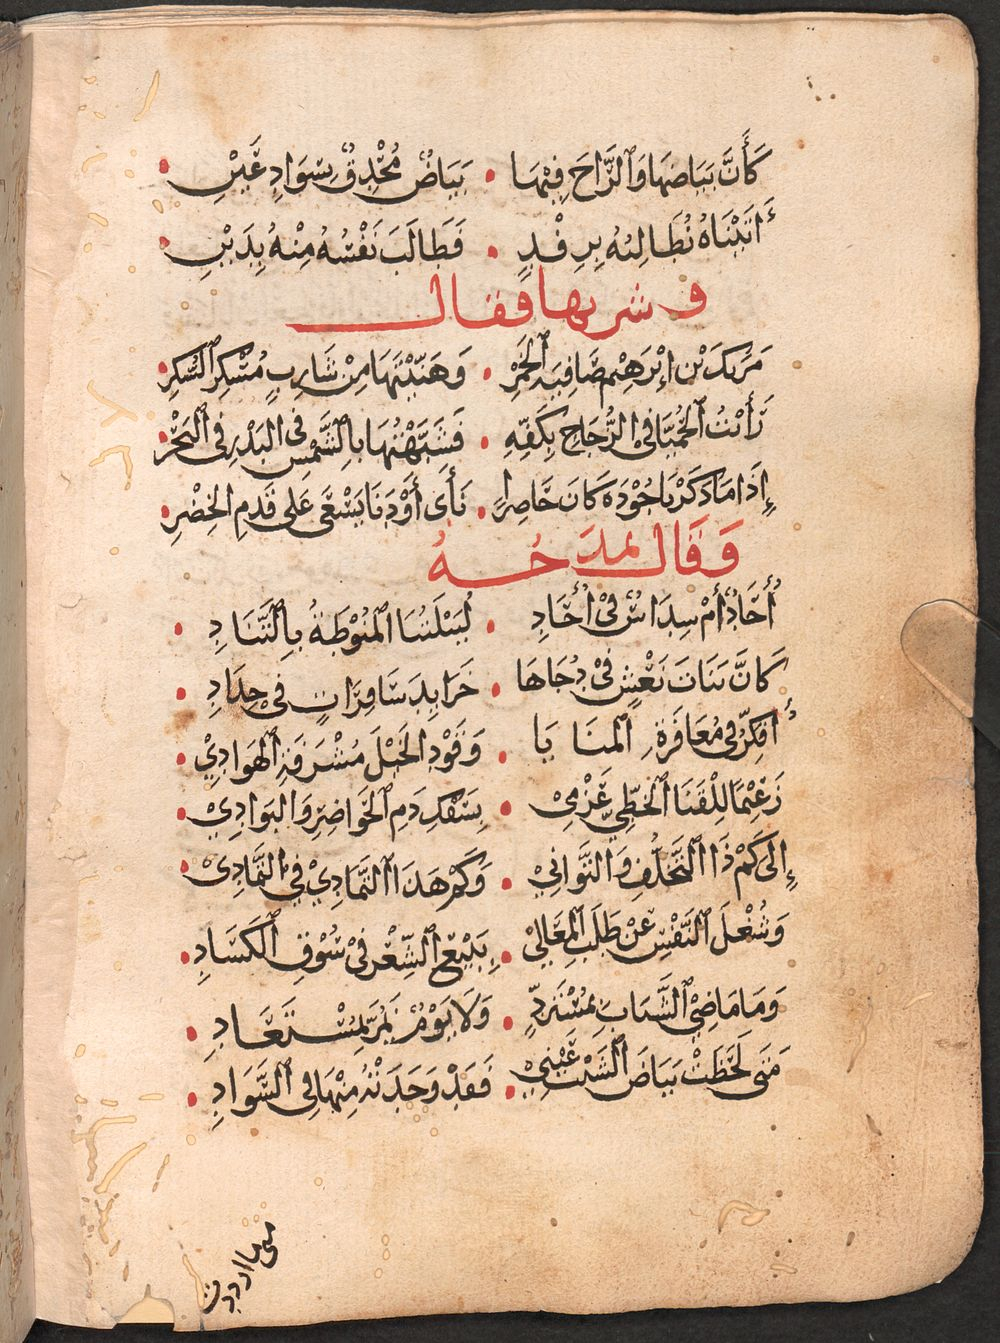 كَأَنَّ بَيَاضَهَا وَالرَّاحَ فِيهَا • بَيَاضٌ مُحْدِقٌ بِسَوَادِ عَيْنِ •
أَتَيْنَاهُ نُطَالِبُهُ بِرِفْدٍ • فَطَالَبَ نَفْسُهُ مِنْهُ بِدَيْنِ •
وشربها فقال
مَرَتْكَ بْنَ إِبْرَهِيْمَ صَافِيَةُ الْخَمْرِ • وَهَنِّيْتَهَا مِنْ شَارِبٍ مُسْكِرِ السُّكْرِ •
رَأَيْتُ الْحُمَيَّا فِي الزُّجَاجِ بِكَفِّهِ • فَشَبَّهْتُهَا بِالشَّمْسِ فِي الْبَدْرِ فِي الْبَحْرِ •
إِذَا مَا ذَكَرْنَا جُوْدَهُ كَانَ حَاضِرًا • نَأَى أَوْ دَنَا يَسْعَى عَلَى قَدَمِ الْخِضْرِ •
وَقَالَ يَمْدَحُهُ
أُحَادٌ أَمْ سِدَاسٌ فِيْ أُحَادِ • لُيَيْلَتُنَا الْمَنُوْطَةُ بِالتَّنَادِ •
كَانَّ بَنَاتَ نَعْشٍ فِيْ دُجَاهَا • خَرَايِدَ سَافِرَاتٍ فِيْ حِدَادِ •
أُفَكِّرُ فِي مُعَاقَرَةِ الْمَنَايَا • وَقَوْدِ الْخَيْلَ مُشْرَفَةِ الْهَوَادِيْ •
زَعِيْمًا لِلْقَنَا الْخَطِّيِّ عَزْمِيْ • بِسَفْكِ دَمِ الْحَوَاضِرِ وَالْبَوَادِيْ •
إِلَى كَمْ ذَا التَّخَلُّفِ وَالتَّوَانِيْ • وَكَمْ هَذَا التَّمَادِيْ فِي التَّمَادِيْ •
وَشُغْلَ النَّفْسِ عَنْ طَلَبِ الْمَعَالِيْ • بِبَيْعِ الشِّعْرِ فِيْ سُوْقِ الْكَسَادِ •
وَمَا مَاضِيْ الشَّبَابِ بِمُسْتَرَدٍّ • وَلَا يَوْمٌ يَمُرُّ بِمُسْتَعَادِ •
مَتَى لَحَظَتْ بَيَاضَ الشَّيْبِ عَيْنِيْ • فَقَدْ وَجَدَتْهُ مِنْهَا فِي السَّوَادِ •
متى ما ازددت